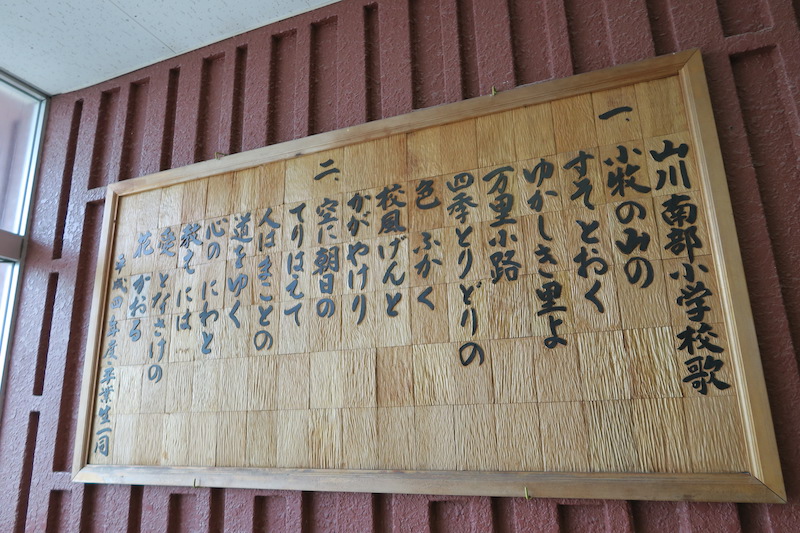 山川南部小学校歌
一、
小牧の山の
すそとおく
ゆかしき里よ
万里小路
四季とりどりの
色ふかく
校風げんと
かがやけり
二、
空に朝日の
てりはえて
人はまことの
道をゆく
心のにわと
教えには
愛となさけの
花かおる
平成四年度卒業生一同